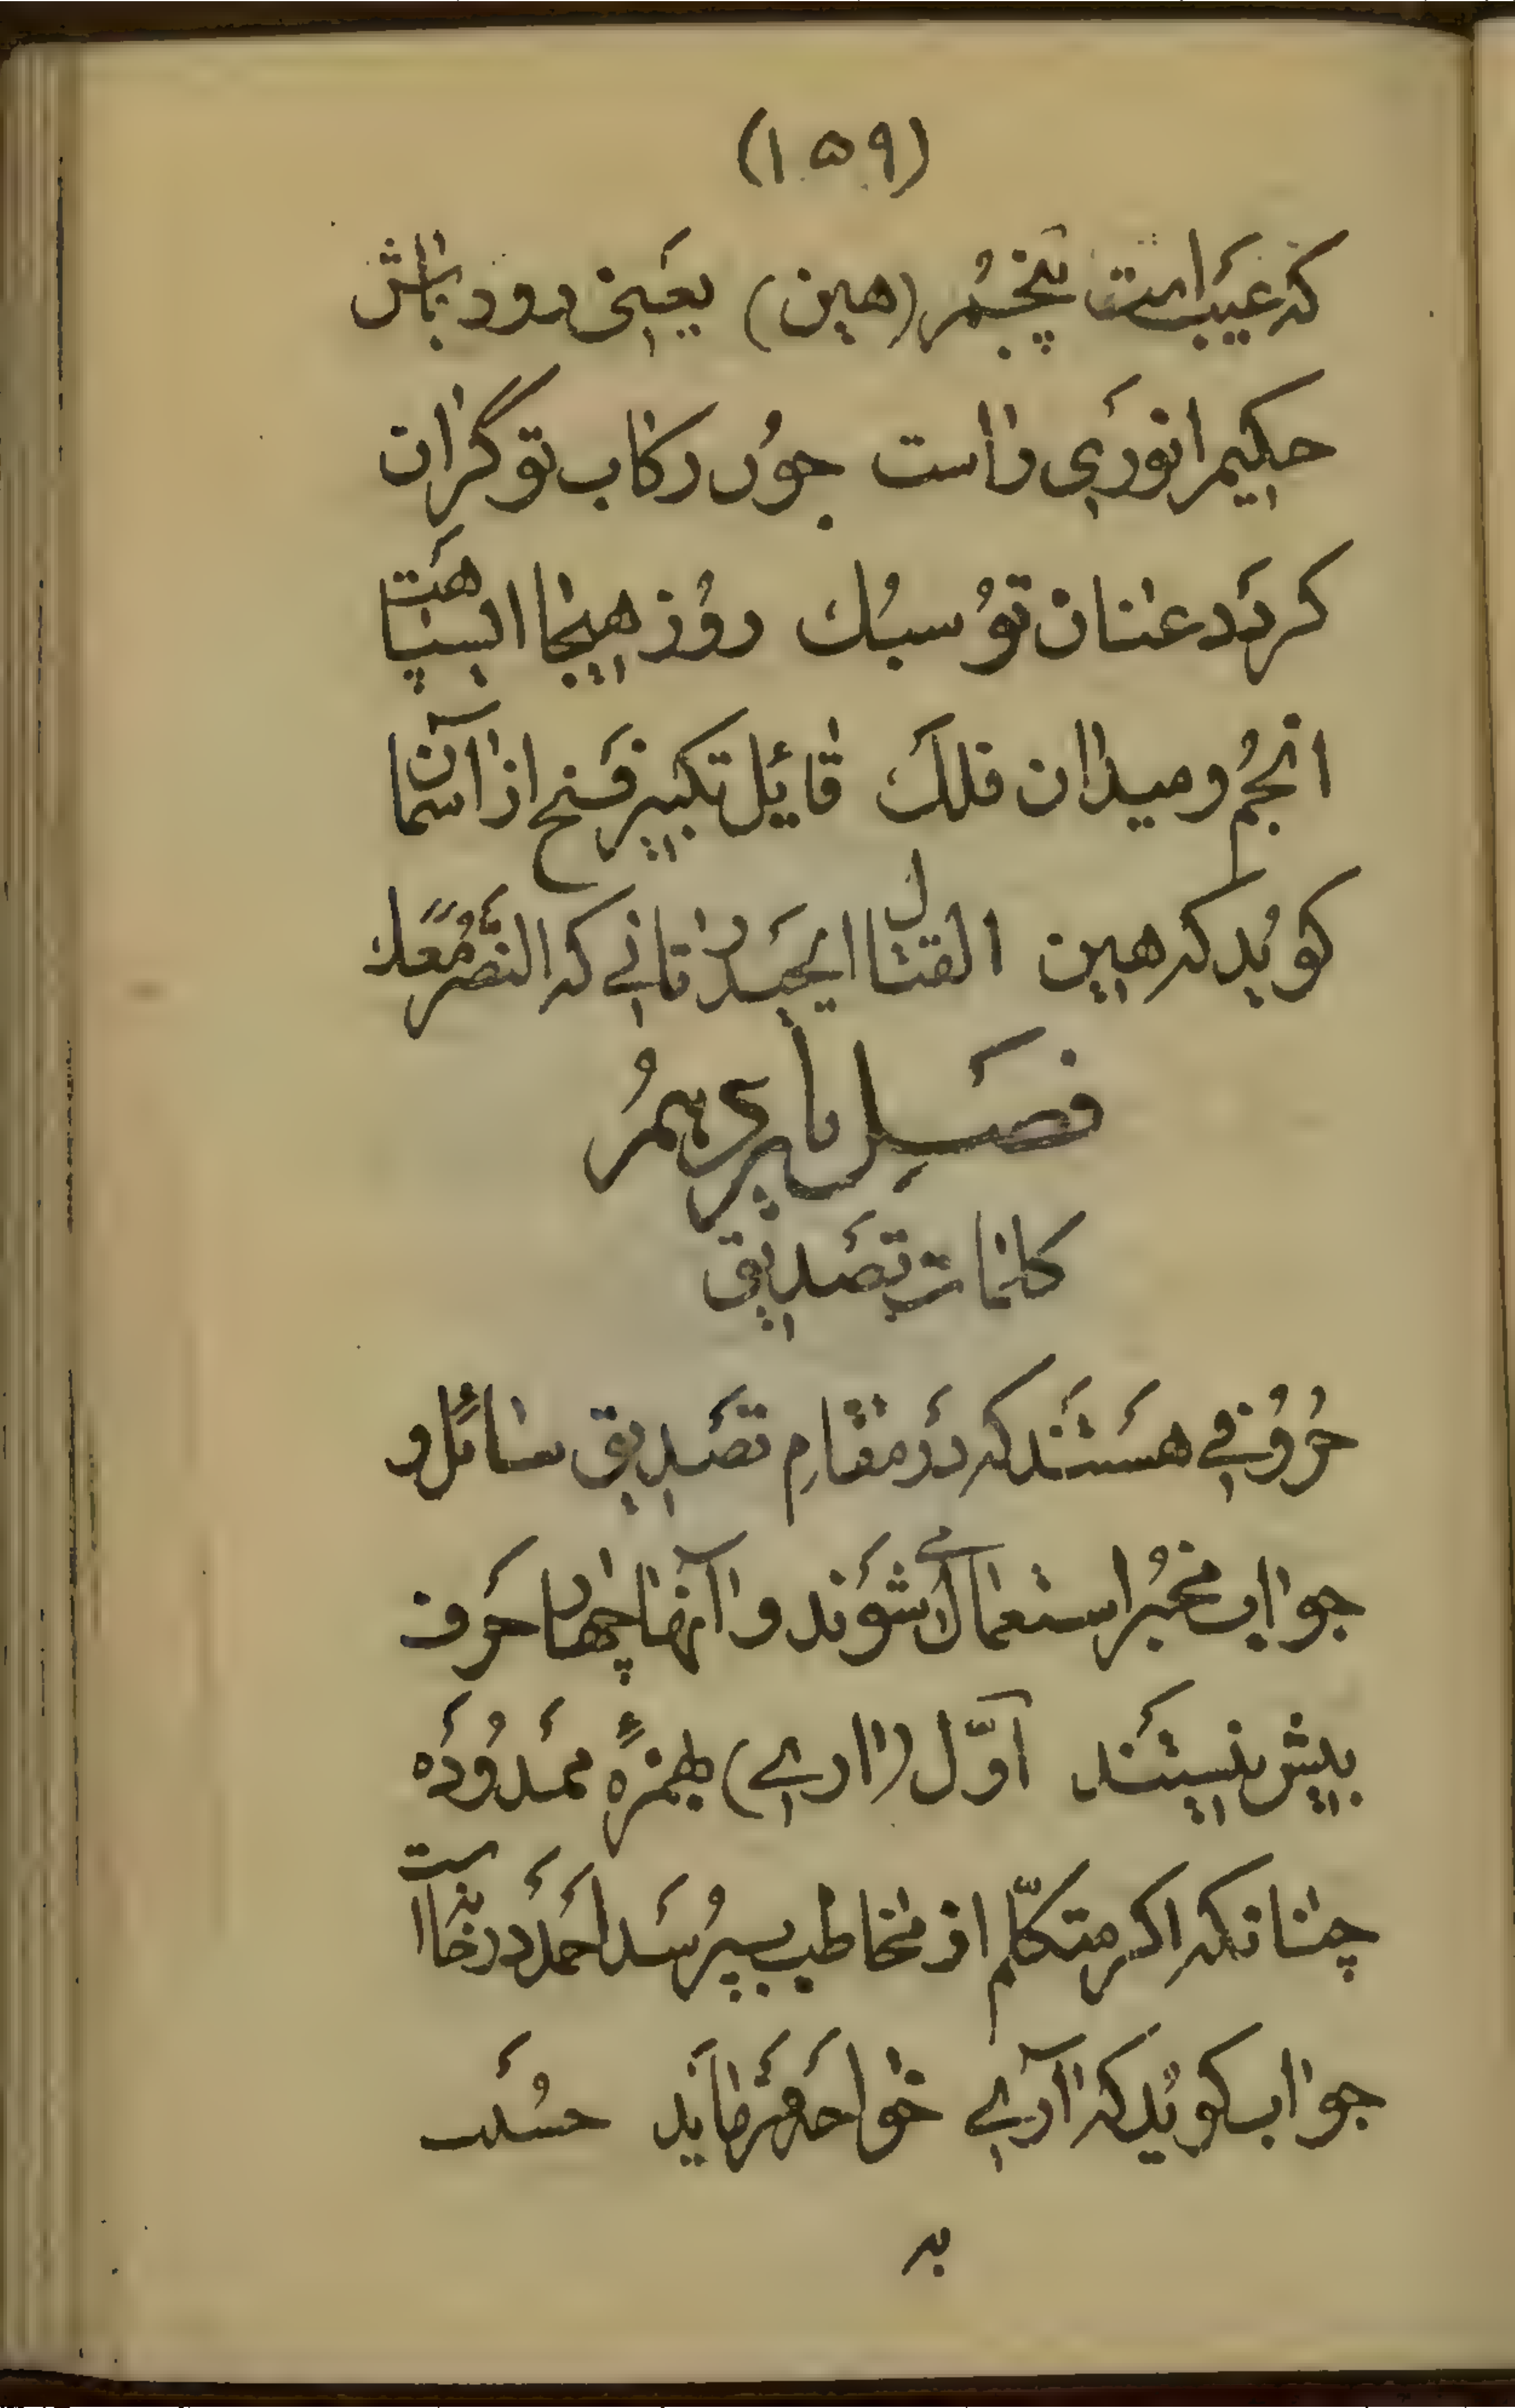 (۱۵۹)
که عیب است پنجم (هین) یعنی زود باش
حکیم انوری راست چون رکاب تو گران
کردد عنان تو سبک روز هیجا ای سپاهت
انجم و میدان فلک قائل تکبیر فتح از آسمان
کوید که هین القتال ای حیدر ثانی که النصر معک
فصل یازدهم
کلمات تصدیق
حروفی هستند که در مقام تصدیق سائل و
جواب مخبر استعمال می شوند و آنها چهار حرف
بیش نیستند اوّل (اری) بهمزهٔ ممدوده
چنانکه اکر متکلّم از مخاطب بپرسد احمد در خانه است
جواب کوید که آری خواجه فرماید حسنت
به